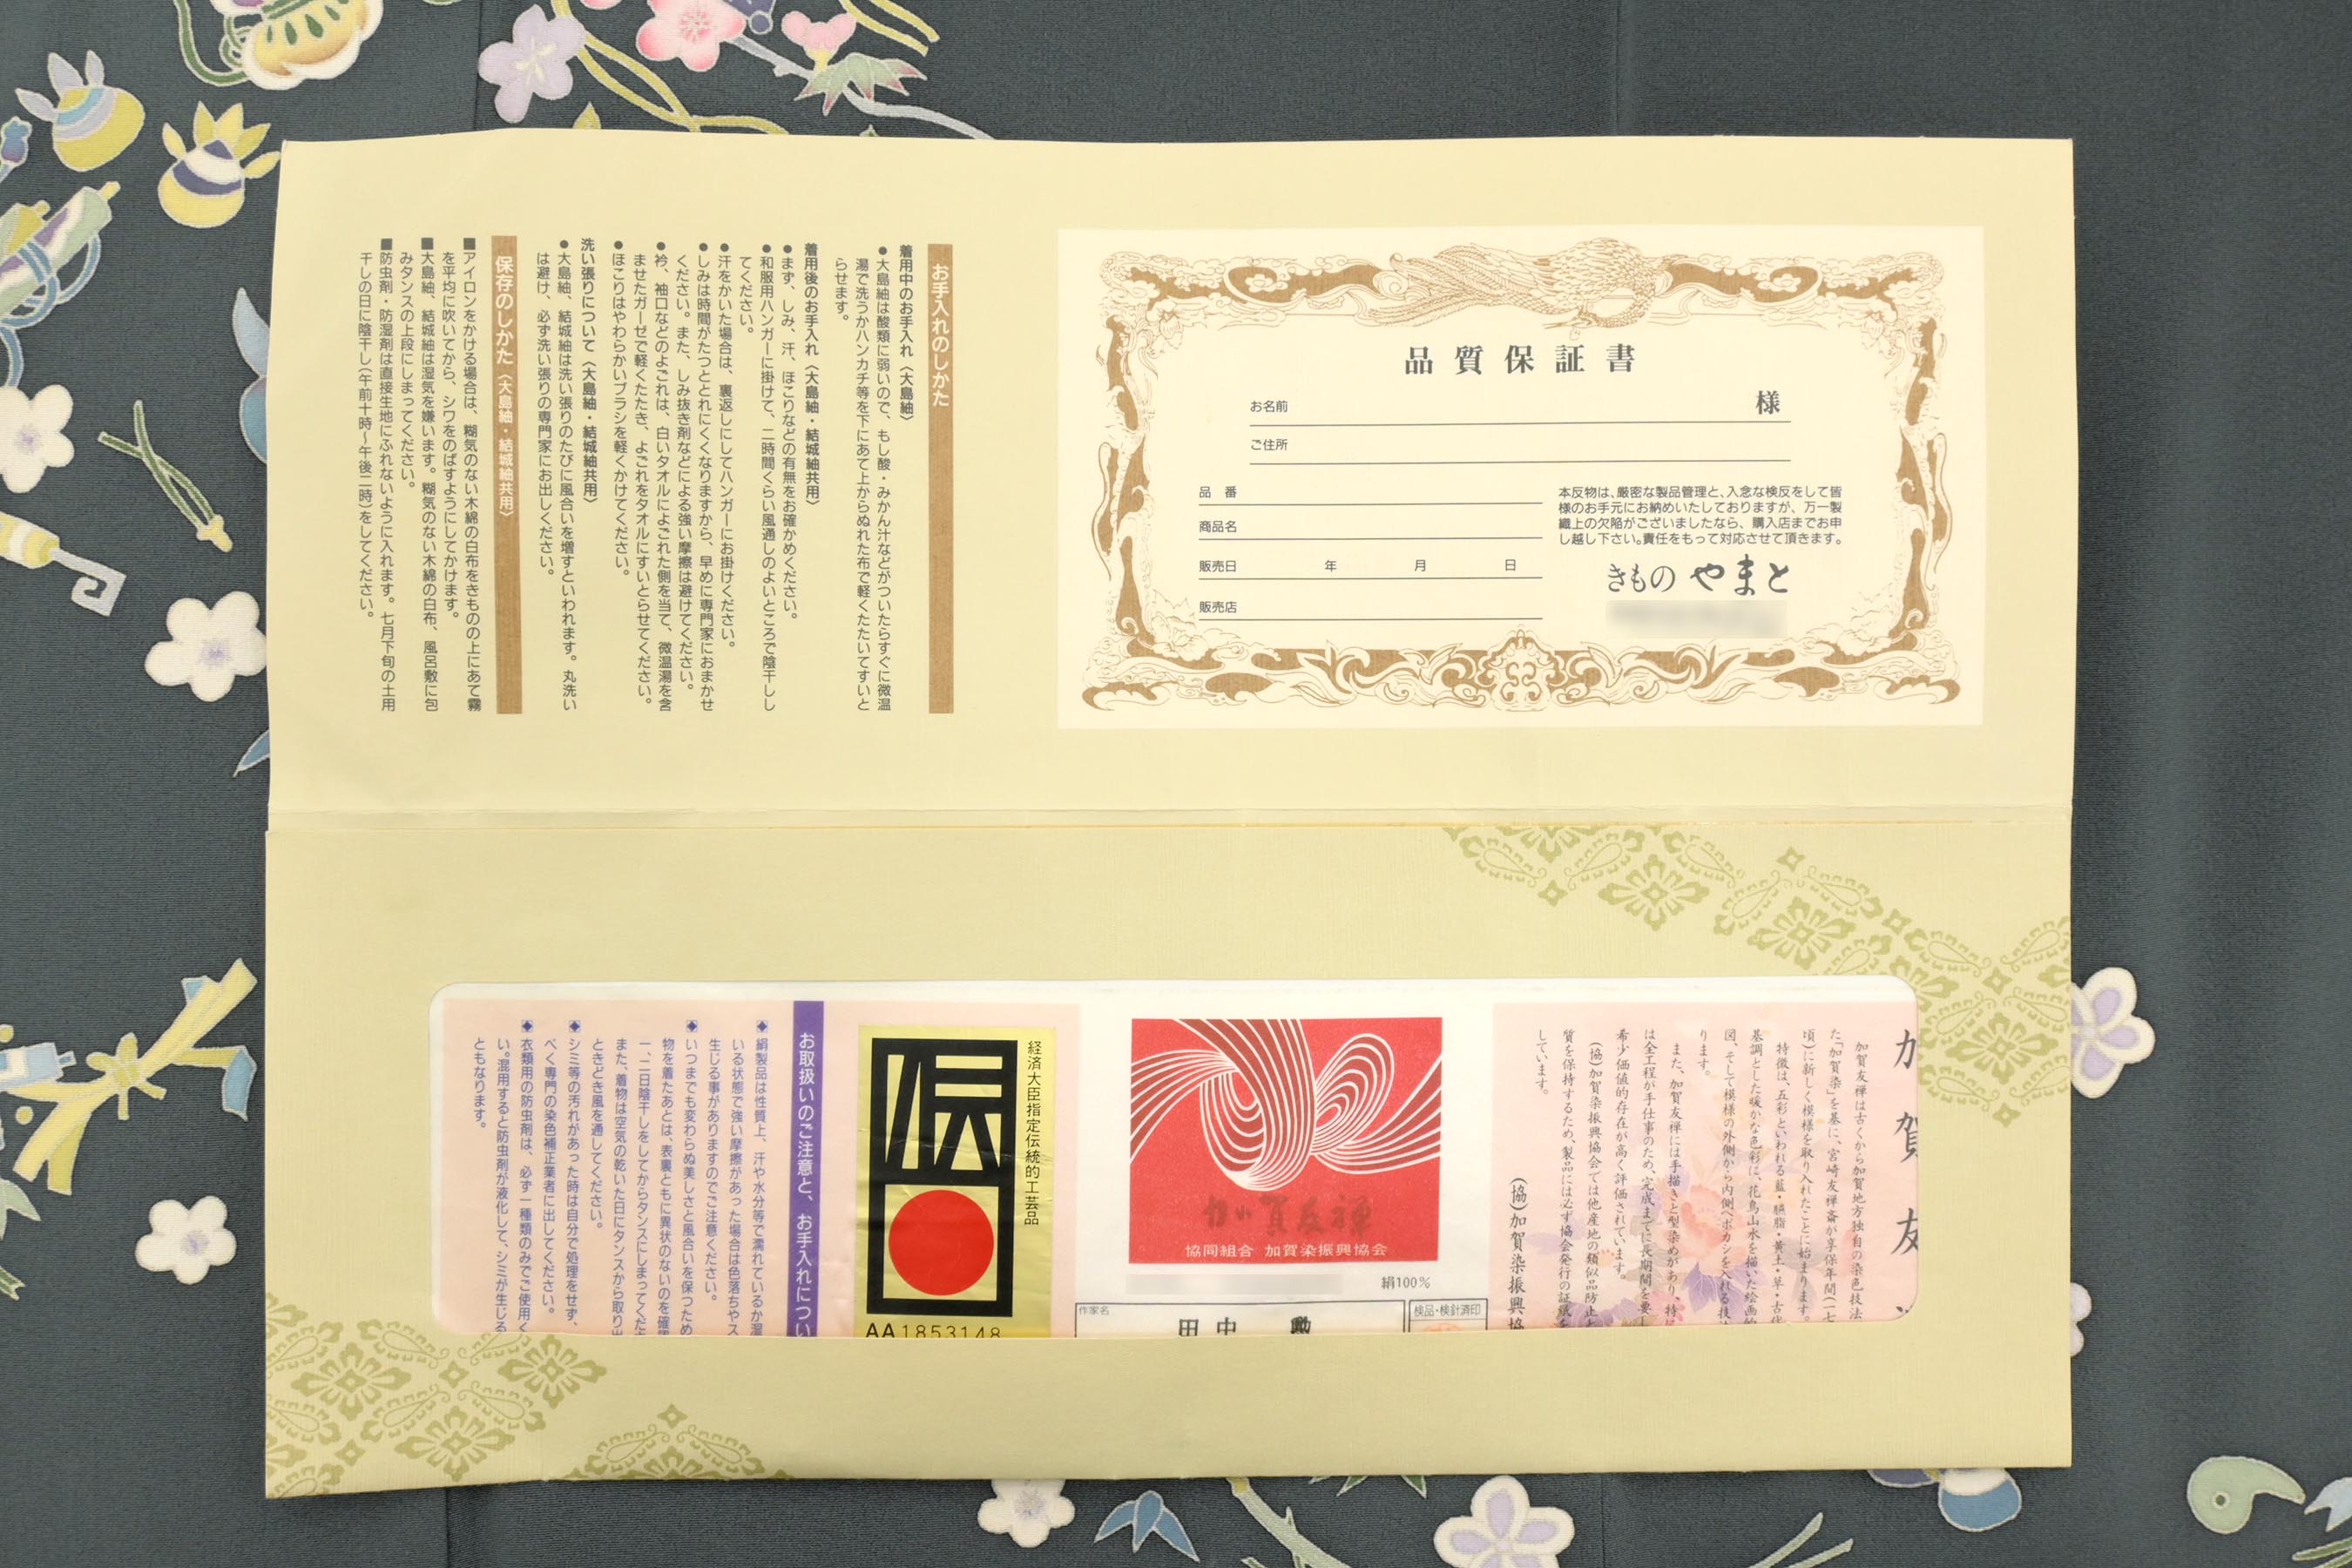 品質保証書
お名前 様
ご住所
品 番
商品名
販売日 年 月 日
販売店
本反物は、厳密な製品管理と、入念な検反をして皆
様のお手元にお納めいたしておりますが、万一製
織上の欠陥がございましたなら、購入店までお申
し越し下さい。責任をもって対応させて頂きます。
きもの やまと
お手入れのしかた
着用中のお手入れ〈大島紬〉
●大島紬は酸類に弱いので、もし酸・みかん汁などがついたらすぐに微温
湯で洗うかハンカチ等を下にあて上からぬれた布で軽くたたいてすいと
らせます。
着用後のお手入れ〈大島紬・結城紬共用〉
●まず、しみ、汗、ほこりなどの有無をお確かめください。
●和服用ハンガーに掛けて、二時間くらい風通しのよいところで陰干しし
てください。
●汗をかいた場合は、裏返しにしてハンガーにお掛けください。
●しみは時間がたつととれにくくなりますから、早めに専門家におまかせ
ください。また、しみ抜き剤などによる強い摩擦は避けてください。
●衿、袖口などのよごれは、白いタオルによごれた側を当て、微温湯を含
ませたガーゼで軽くたたき、よごれをタオルにすいとらせてください。
●ほこりはやわらかいブラシを軽くかけてください。
洗い張りについて〈大島紬・結城紬共用〉
●大島紬、結城紬は洗い張りのたびに風合いを増すといわれます。丸洗い
は避け、必ず洗い張りの専門家にお出しください。
保存のしかた〈大島紬・結城紬共用〉
■アイロンをかける場合は、糊気のない木綿の白布をきものの上にあて霧
を平均に吹いてから、シワをのばすようにしてかけます。
■大島紬、結城紬は湿気を嫌います。糊気のない木綿の白布、風呂敷に包
みタンスの上段にしまってください。
■防虫剤・防湿剤は直接生地にふれないように入れます。七月下旬の土用
干しの日に陰干し(午前十時〜午後二時)をしてください。
加賀友
加賀友禅は古くから加賀地方独自の染色技法
た「加賀染」を基に、宮崎友禅斎が享保年間(一七
頃)に新しく模様を取り入れたことに始まります。
特徴は、五彩といわれる藍・臙脂・黄土・草・古代
基調とした暖かな色彩に、花鳥山水を描いた絵画的
図、そして模様の外側から内側へボカシを入れる技
ります。
また、加賀友禅には手描きと型染めがあり、特に
は全工程が手仕事のため、完成までに長期間を要し
希少価値的存在が高く評価されています。
(協)加賀染振興協会では他産地の類似品防止
質を保持するため、製品には必ず協会発行の証紙を
しています。
(協)加賀染振興協
加賀友禅
協同組合 加賀染振興協会
絹100%
作家名
田中 勲
検品・検針済印
経済大臣指定伝統的工芸品
伝
AA1853148
お取扱いのご注意と、お手入れについ
◆絹製品は性質上、汗や水分等で濡れているか湿
いる状態で強い摩擦があった場合は色落ちやス
生じる事がありますのでご注意ください。
◆いつまでも変わらぬ美しさと風合いを保つため
物を着たあとは、表裏ともに異状のないのを確
一、二日陰干しをしてからタンスにしまってくだ
また、着物は空気の乾いた日にタンスから取り出
ときどき風を通してください。
◆シミ等の汚れがあった時は自分で処理をせず、
べく専門の染色補正業者に出してください。
◆衣類用の防虫剤は、必ず一種類のみでご使用く
い。混用すると防虫剤が液化して、シミが生じる
ともなります。